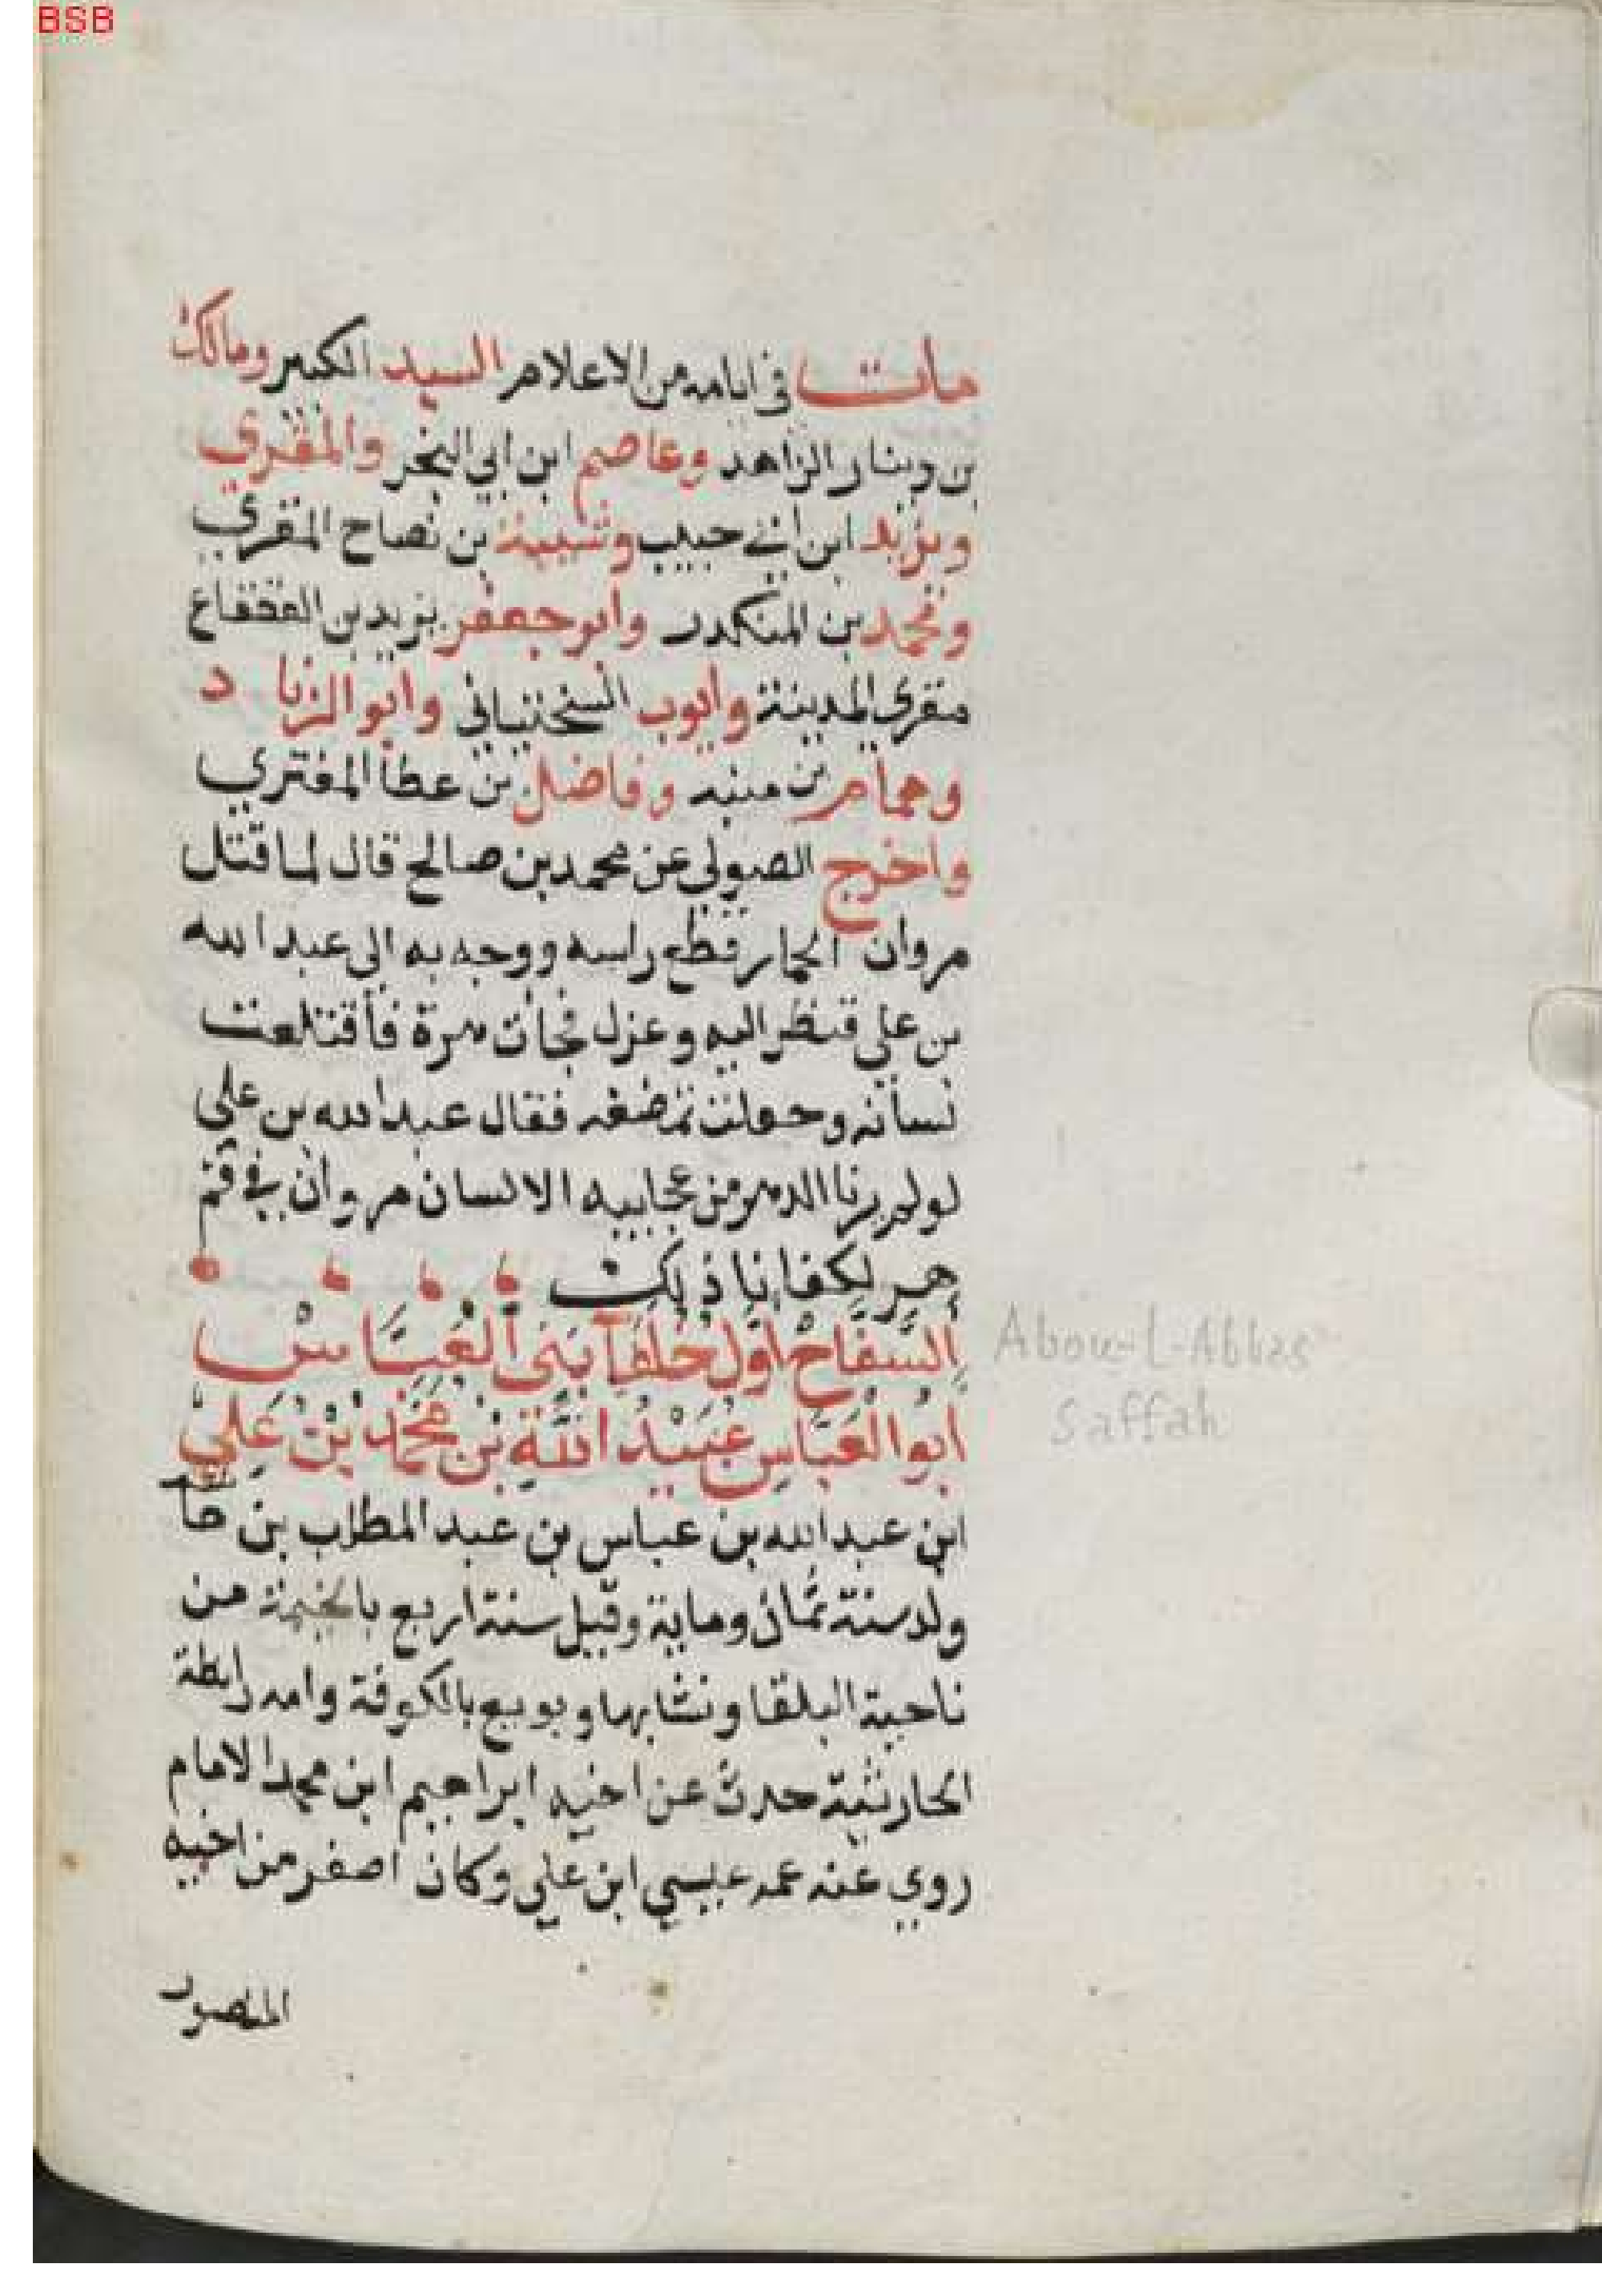 BSB
مات في ايامه من الاعلام السيد الكبير ومالك
بن دينار الزاهد وعاصم ابن ابي النجر والمقري
ويزيد ابن ابي حبيب وشيبة بن نصاح المقري
ومحمد بن المنكدر وابو جعفر يزيد بن القعقاع
مقري المدينة وايوب السختياني وابو الزناد
وهمام بن منبه وفاضل بن عطا المغتري
واخرج الصولي عن محمد بن صالح قال لما قتل
مروان الحمار قطع راسه ووجه به الى عبد الله
بن علي فنظر اليه وعزل فجات هرة فأقتلعت
لسانه وجعلت تمضغه فقال عبد الله بن علي
لو لم يرنا الدهر من عجاييه الا لسان مروان في فم
هر لكفانا ذلك
السَّفَّاح اوّل خُلفَآ بَنى الْعَبَّاسْ
ابُوا الْعَبَّاس عَبْدُ اللَّه بْن مُحَمَّد بْنْ عَلِيْ
Abou-l-Abbas
Saffah
ابن عبد الله بن عباس بن عبد المطلب بن ها
ولد سنة ثمان وماية وقيل سنة اربع بالحيمة من
ناحية البلقا ونشا بها وبويع بالكوفة وامه رابطة
الحارثية حدث عن اخيه ابراهيم ابن محمد الامام
روي عنه عمه عيسي ابن علي وكان اصغر من اخيه
المنصور